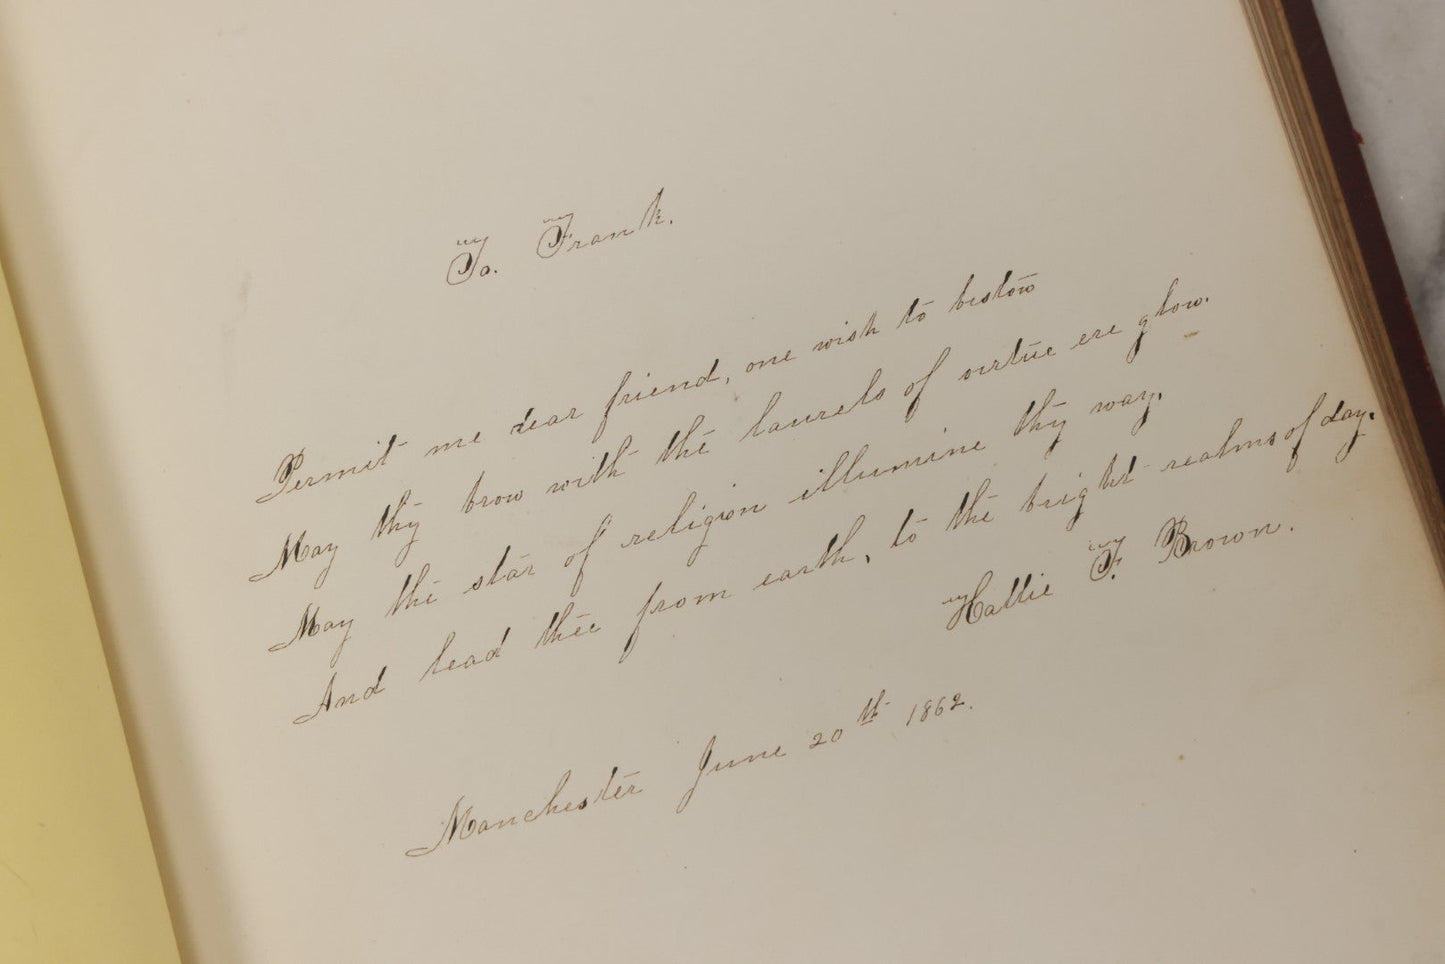 To. Frank.
Permit me dear friend, one wish to bestow
May thy brow with the laurels of virtue ere glow.
May the star of religion illumine thy way.
And lead thee from earth, to the bright realms of day.
Hattie F. Brown.
Manchester June 20th 1862.